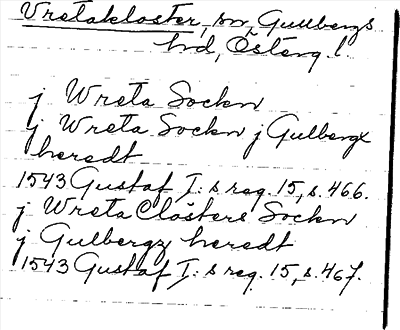 Vretakloster, sn, Gullbergs
hd, Österg. l.
j Wreta Sockn
j Wreta Sockn j Gulbergx
heredt
1543 Gustaf I:s reg. 15, s. 466.
j Wreta Closters Sockn
j Gulbergz heredt
1543 Gustaf I:s reg. 15, s. 467.